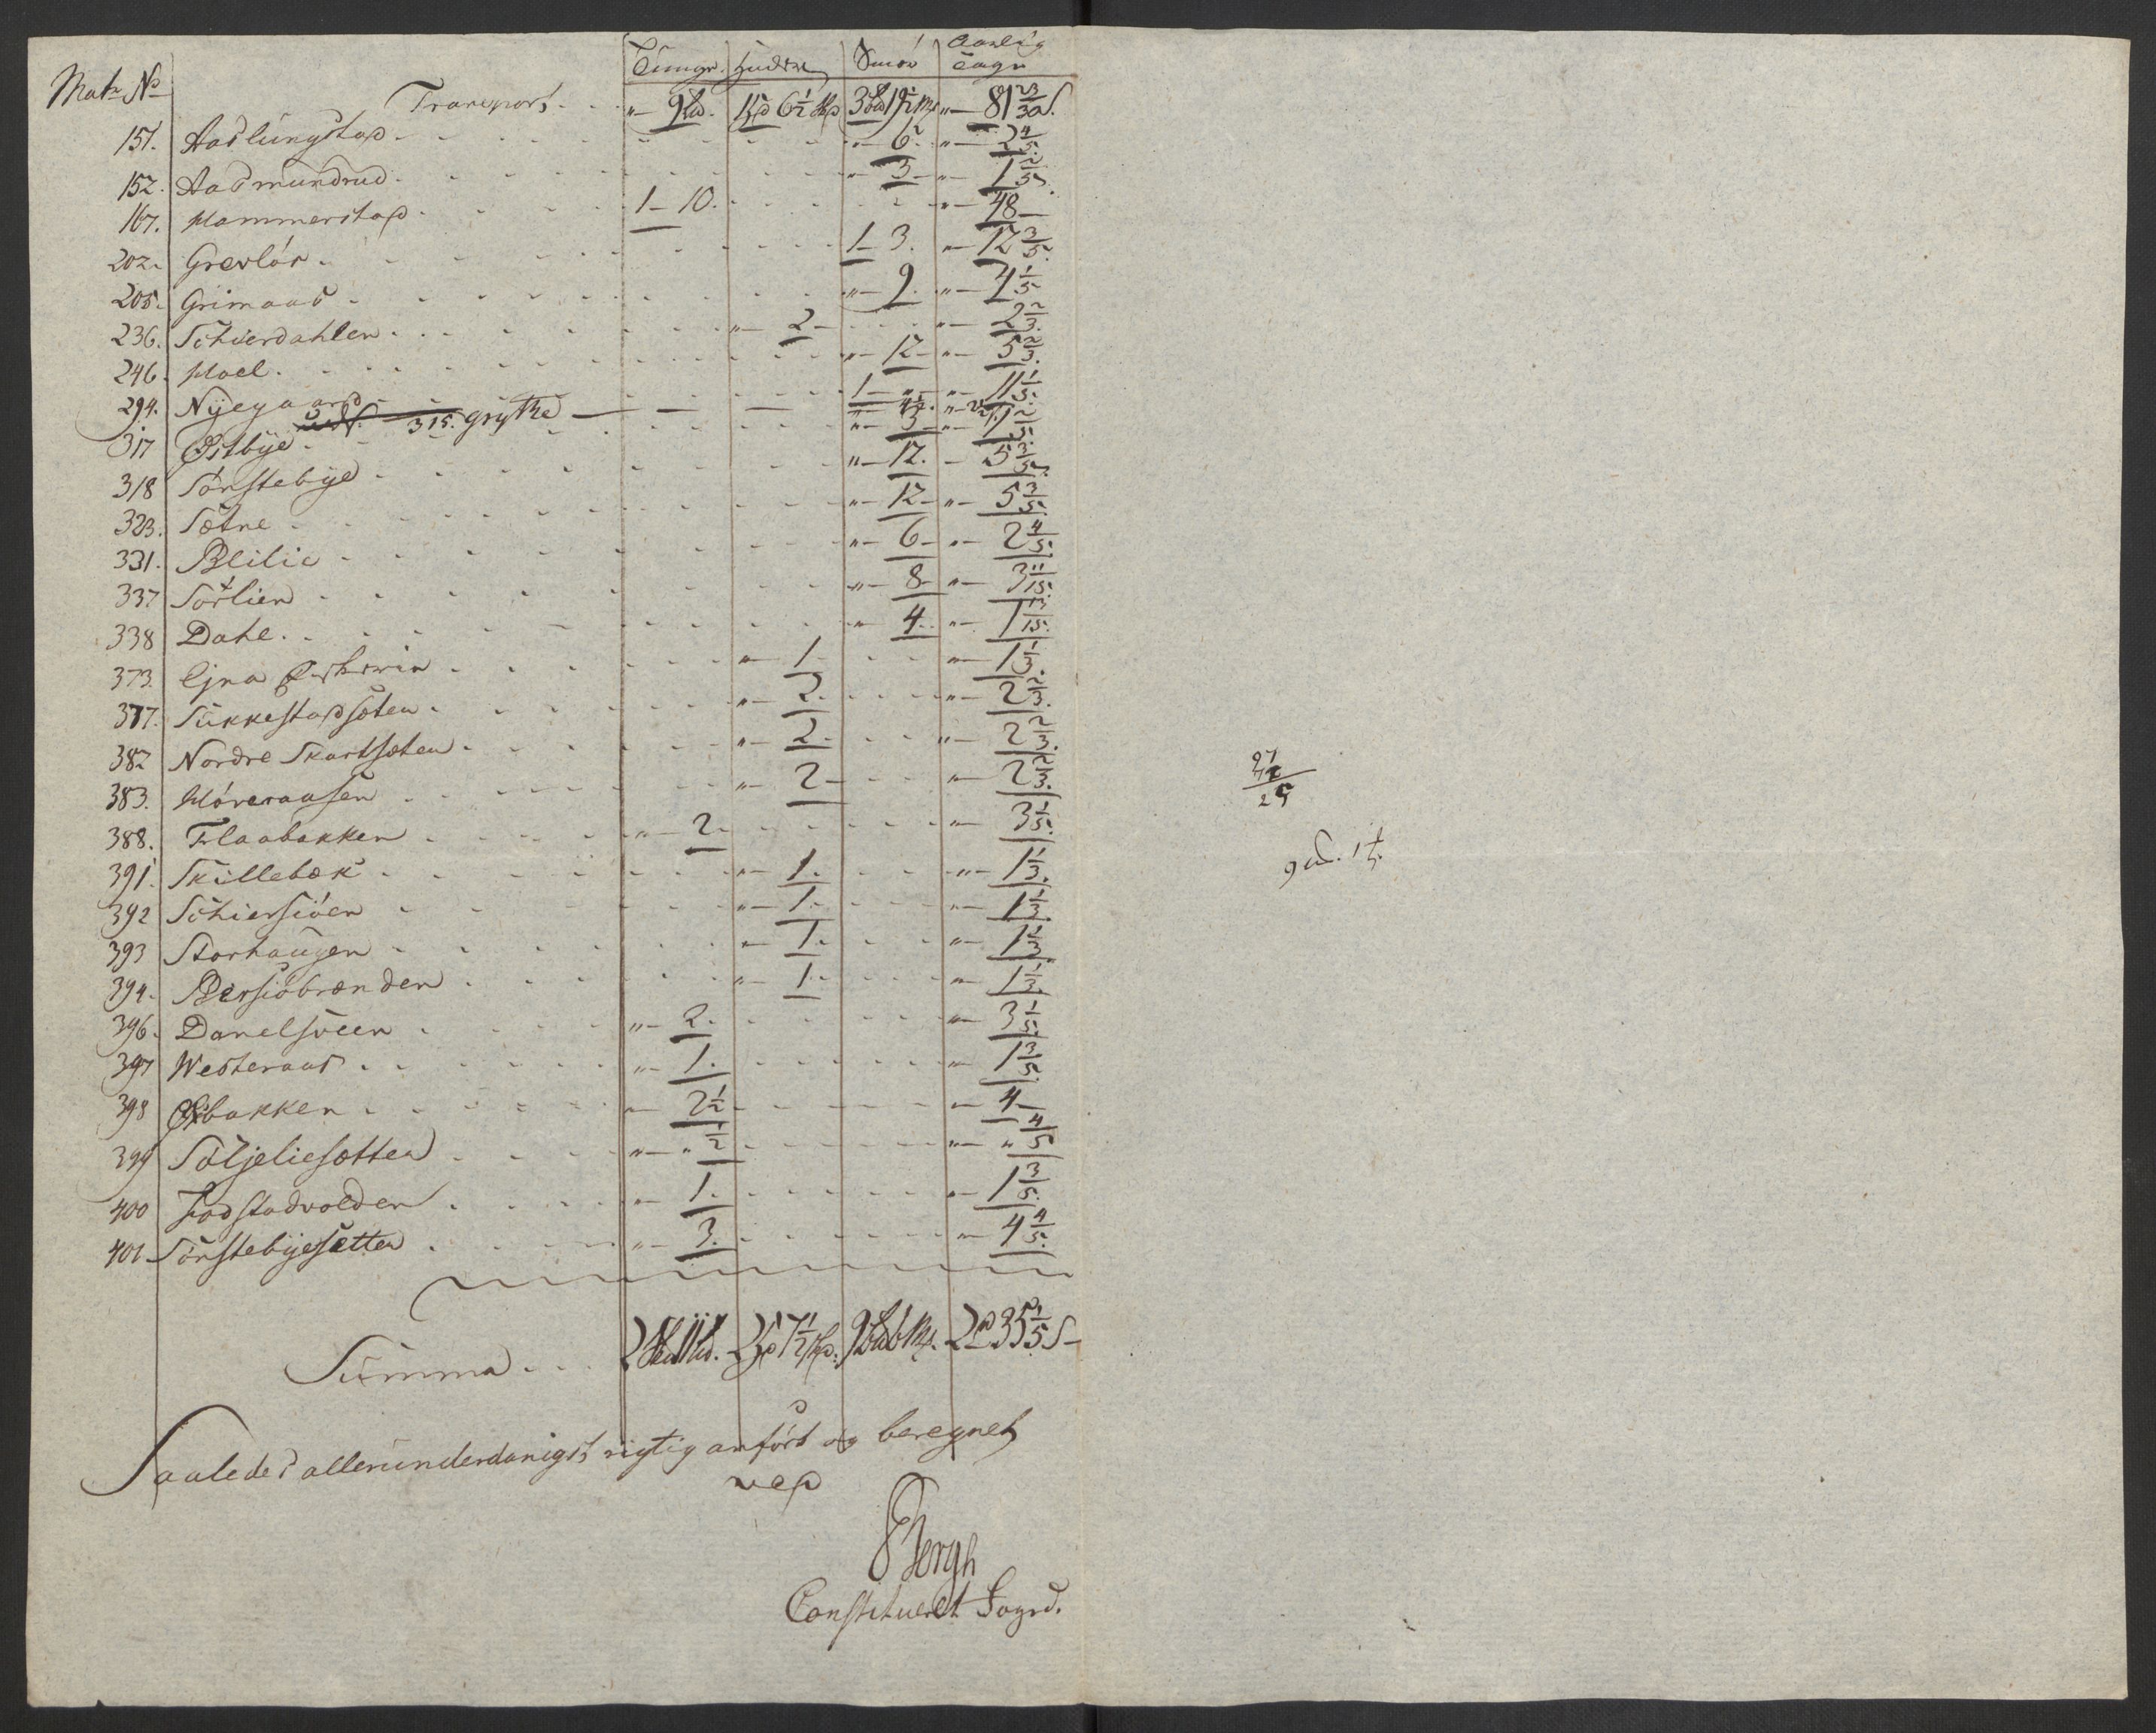 Matr No Tunge. Huder Smör Aarlig Tage
Transport . . „ - 9 Ld. 1 Hd 6½ Skd 3 Bd 19½ Mk „ - 81 23/30 S.
151. Aaslungstad - - - - „ - 6. „ - 2 4/5.
152. Aasmundrud - - - - „ - 3 - „ - 1 2/5.
167. Hammerstad - - 1 - 10. - - - „ - 48 -
202. Grevlös - - - - 1 - 3. „ - 12 3/5.
205. Grimaas - - - - „ - 9. „ - 4 1/5
236. Schierdahlen - - - „ - 2 - - - „ - 2 2/3.
246. Moel - - - - „ - 12 - „ - 5 2/3.
294. Nÿegaard - - - - 1 - „ - „ - 11 1/5.
315. Grÿthe - - - „ - 4½. „ - 2 1/2
317 Östbÿe - - - - „ - 3 - „ - 1 2/5.
318 Sönstebÿe - - - - „ - 12. - 5 3/5.
323. Sætne - - - - „ - 12 - „ - 5 3/5.
331. Blilie - - - - „ - 6 - „ - 2 4/5.
337 Sörlien - - - - „ - 8 - „ - 3 11/15.
338 Dahl - - - - „ - 4. „ - 1 13/15.
373. Ejna - - - „ - 1 - - - „ - 1 1/3.
377. Sukkestadsæten - - - „ - 2. - - „ - 2 2/3.
382 Nordre Skartsæten - - - „ - 2 - - - „ - 2 2/3.
383. Höveraasen - - - „ - 2 - - - „ - 2 2/3.
388. Flaabakken - - „ - 2. - - - „ - 3 1/5.
391. Skillebæk - - - „ - 1. - - „ - 1 1/3.
392 Schiersiöen - - - „ - 1. - - „ - 1 1/3.
393 Storhaugen - - - „ - 1. - - „ - 1 1/3
394. Bersiöbrænden - - - „ - 1. - - „ - 1 1/3.
396. Danelsveen - - „ - 2. - - - „ - 3 1/5.
397 Westeraas - - „ - 1. - - - „ - 1 3/5.
398 Öxbakken - - „ - 2½ - - - „ - 4 -
399 Söljeliesætten - - „ - „ ½ - - - „ - „ 4/5
400 Fodstadvolden - - „ - 1. - - - „ - 1 3/5.
401 Sönstebÿesætten - - „ - 3. - - - „ - 4 4/5.
Summa . . . 2 Skd 11 Ld. 2 Hd 7½ Skd. 9 Bd 6 Mk. 2 rd 35 1/5 S -
Saaledes allerunderdanigst rigtig anfört og beregnet
ved
Bergh
Constitueret Fogd.
27
25